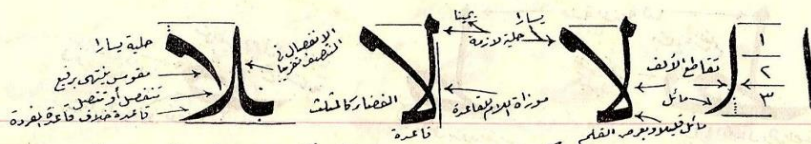 ١
٢
٣
تقاطع الألف
مائل
لا
مائل قليلا وبعرض القلم
يسارا
يمينا
حلية لازمة
لا
موازاة اللام للقاعدة
الفضاء كالمثلث
قاعدة
الانفصال في
النصف تقريبا
بلا
حلية يسارا
مقوس ينتهي برفع
تنفصل أو تتصل
قاعدة خلاف قاعدة المفردة